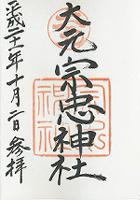 大元宗忠神社
平成二十一年十月二日参拝